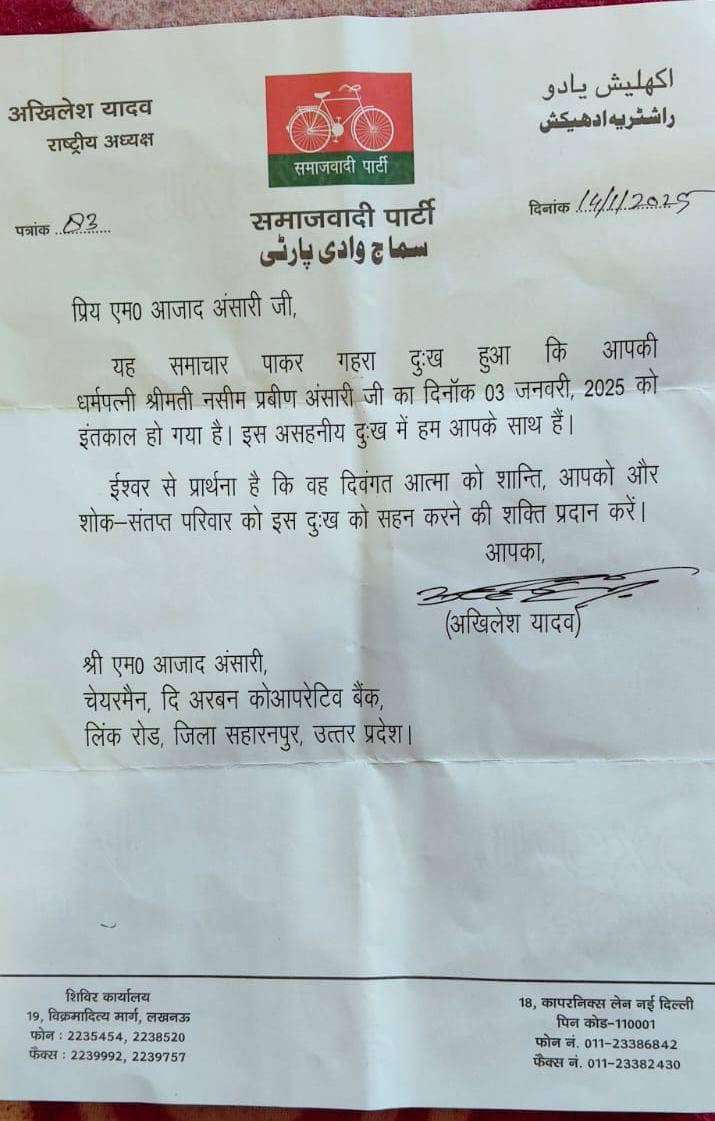 अखिलेश यादव
राष्ट्रीय अध्यक्ष
समाजवादी पार्टी
اکھلیش یادو
راشٹریہ ادھیکش
पत्रांक ..83...........
समाजवादी पार्टी
سماج وادی پارٹی
दिनांक 14/1/2025
प्रिय एम0 आजाद अंसारी जी,
यह समाचार पाकर गहरा दु:ख हुआ कि आपकी
धर्मपत्नी श्रीमती नसीम प्रबीण अंसारी जी का दिनॉक 03 जनवरी, 2025 को
इंतकाल हो गया है। इस असहनीय दु:ख में हम आपके साथ हैं।
ईश्वर से प्रार्थना है कि वह दिवंगत आत्मा को शान्ति, आपको और
शोक–संतप्त परिवार को इस दु:ख को सहन करने की शक्ति प्रदान करें।
आपका,
(अखिलेश यादव)
श्री एम0 आजाद अंसारी,
चेयरमैन, दि अरबन कोआपरेटिव बैंक,
लिंक रोड, जिला सहारनपुर, उत्तर प्रदेश।
शिविर कार्यालय
19, विक्रमादित्य मार्ग, लखनऊ
फोन : 2235454, 2238520
फैक्स : 2239992, 2239757
18, कापरनिक्स लेन नई दिल्ली
पिन कोड–110001
फोन नं. 011–23386842
फैक्स नं. 011–23382430